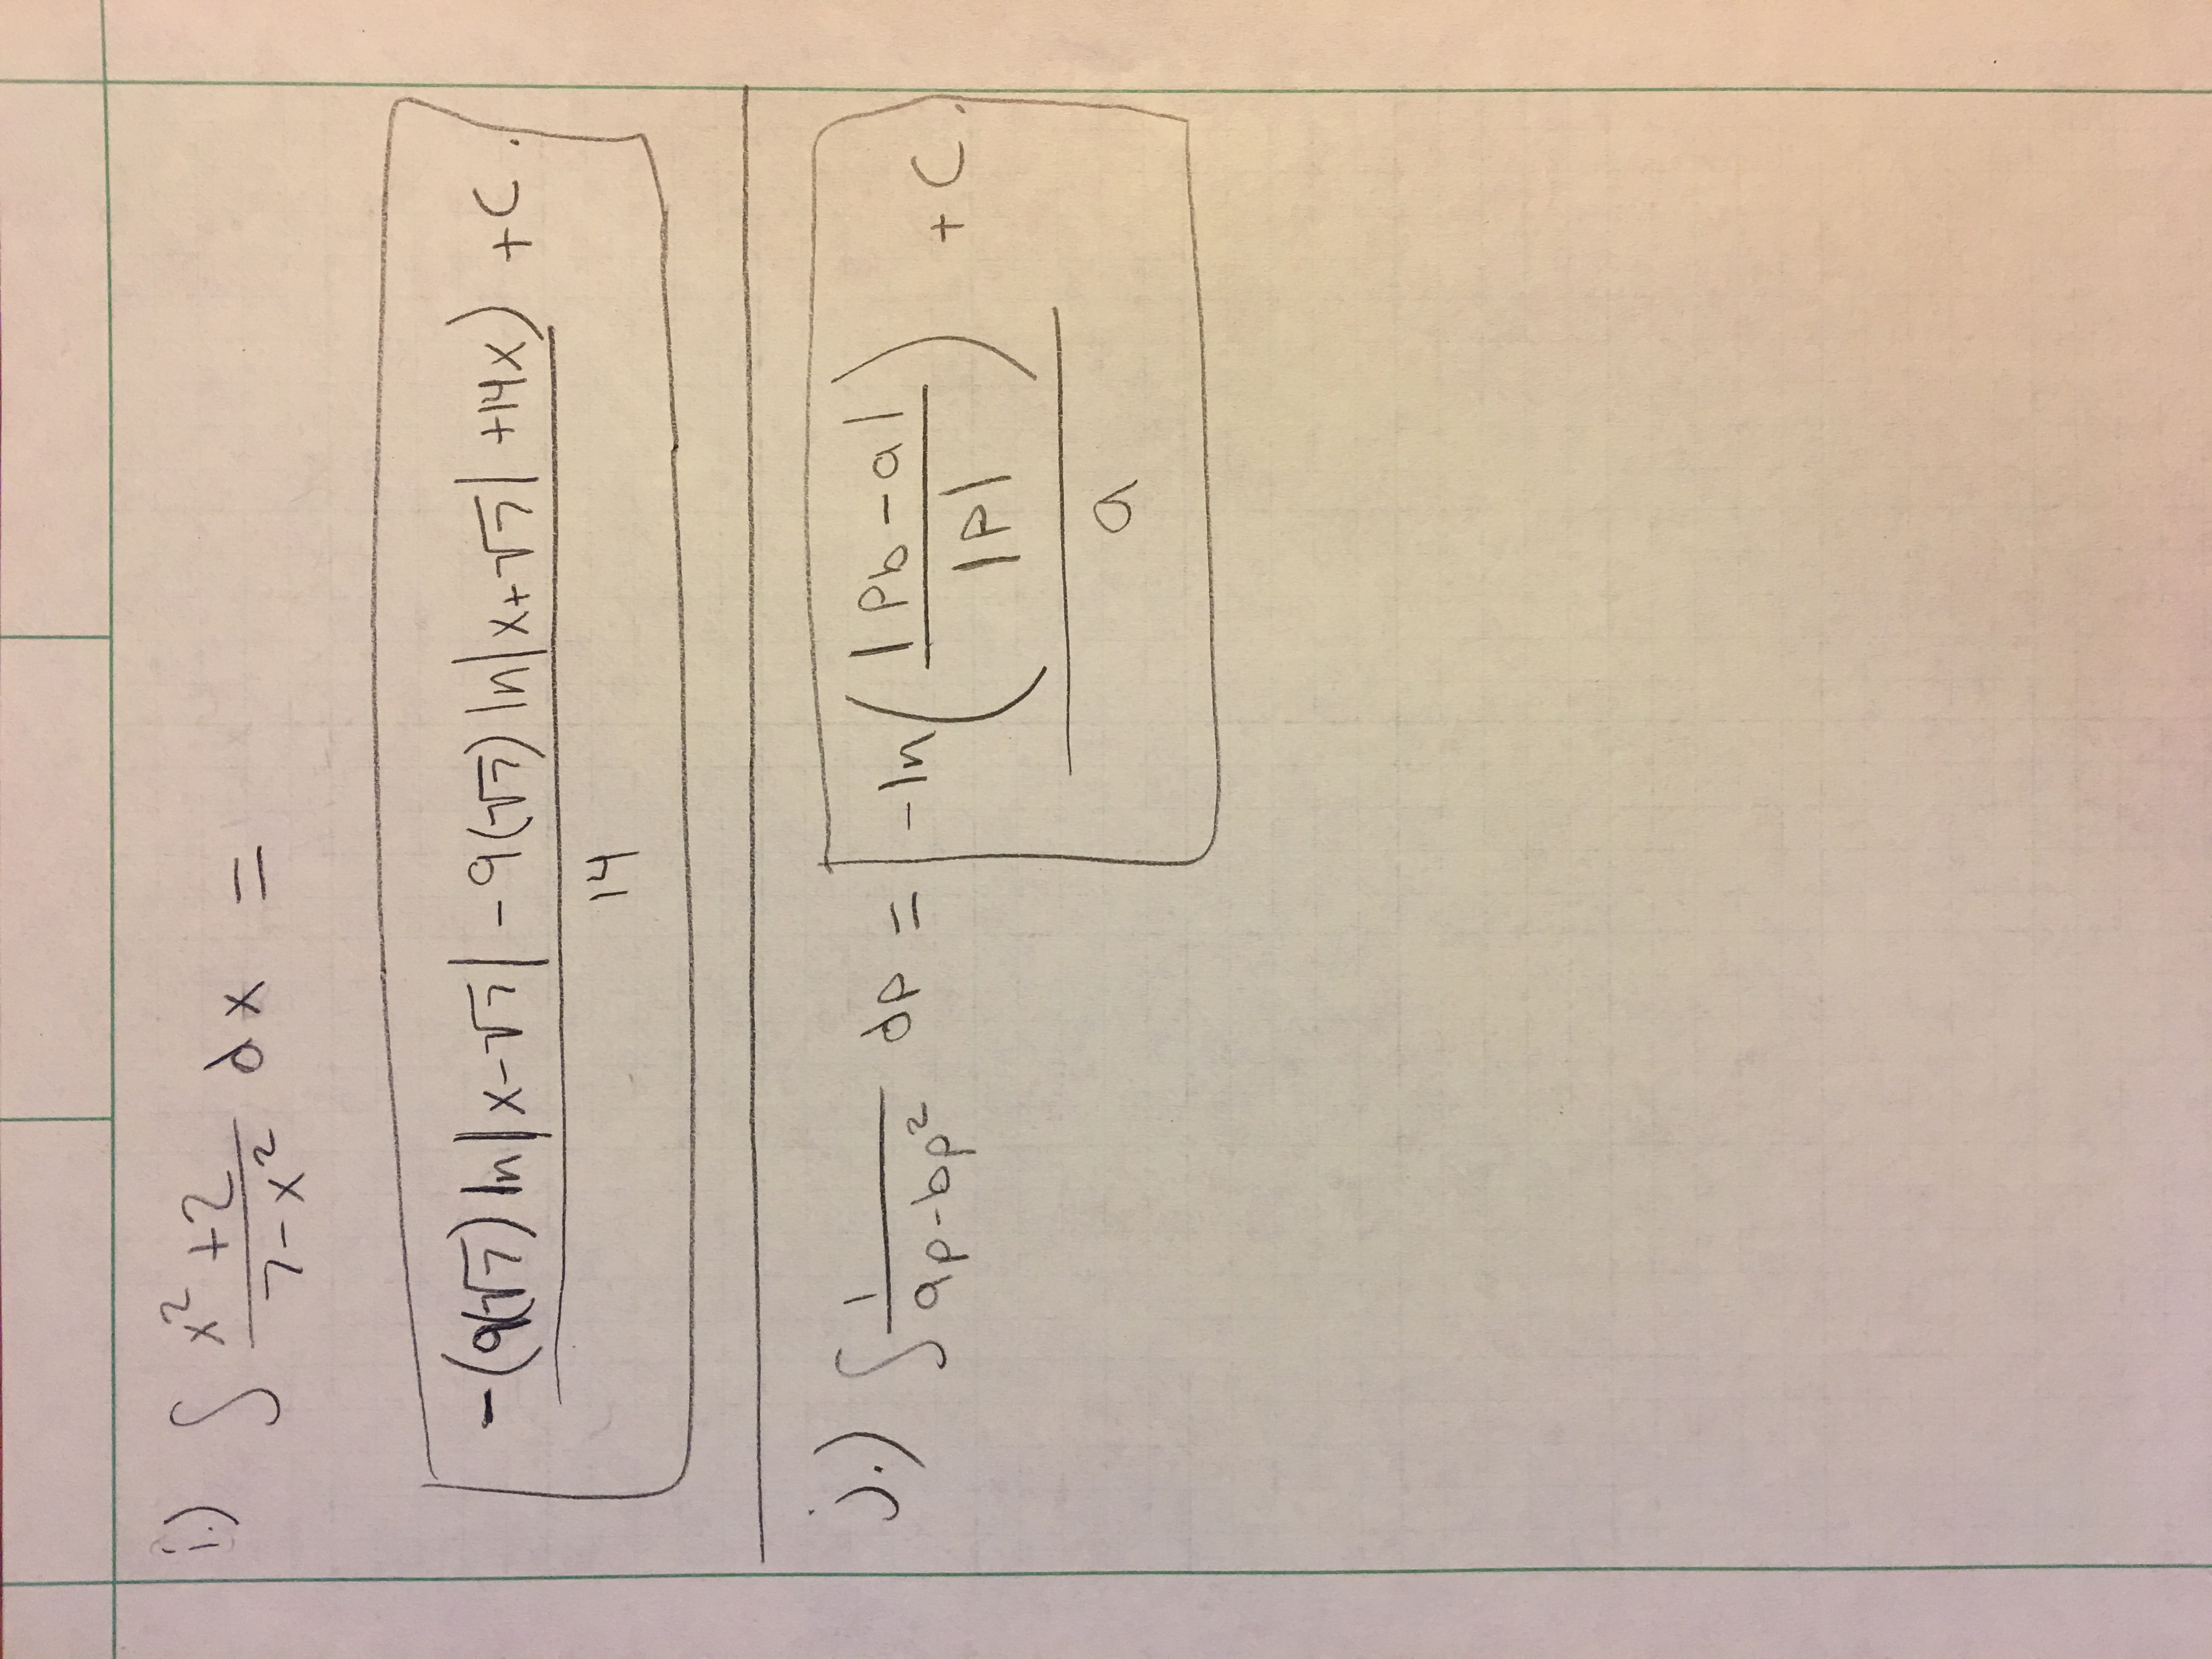 i.) ∫ x² + 2 / 7 - x² dx =
-(9(√7) ln|x-√7| - 9(√7) ln|x+√7| + 14x) / 14 + C.
j.) ∫ 1 / ap - bp² dp = -ln(|Pb - a| / |P|) / a + C.